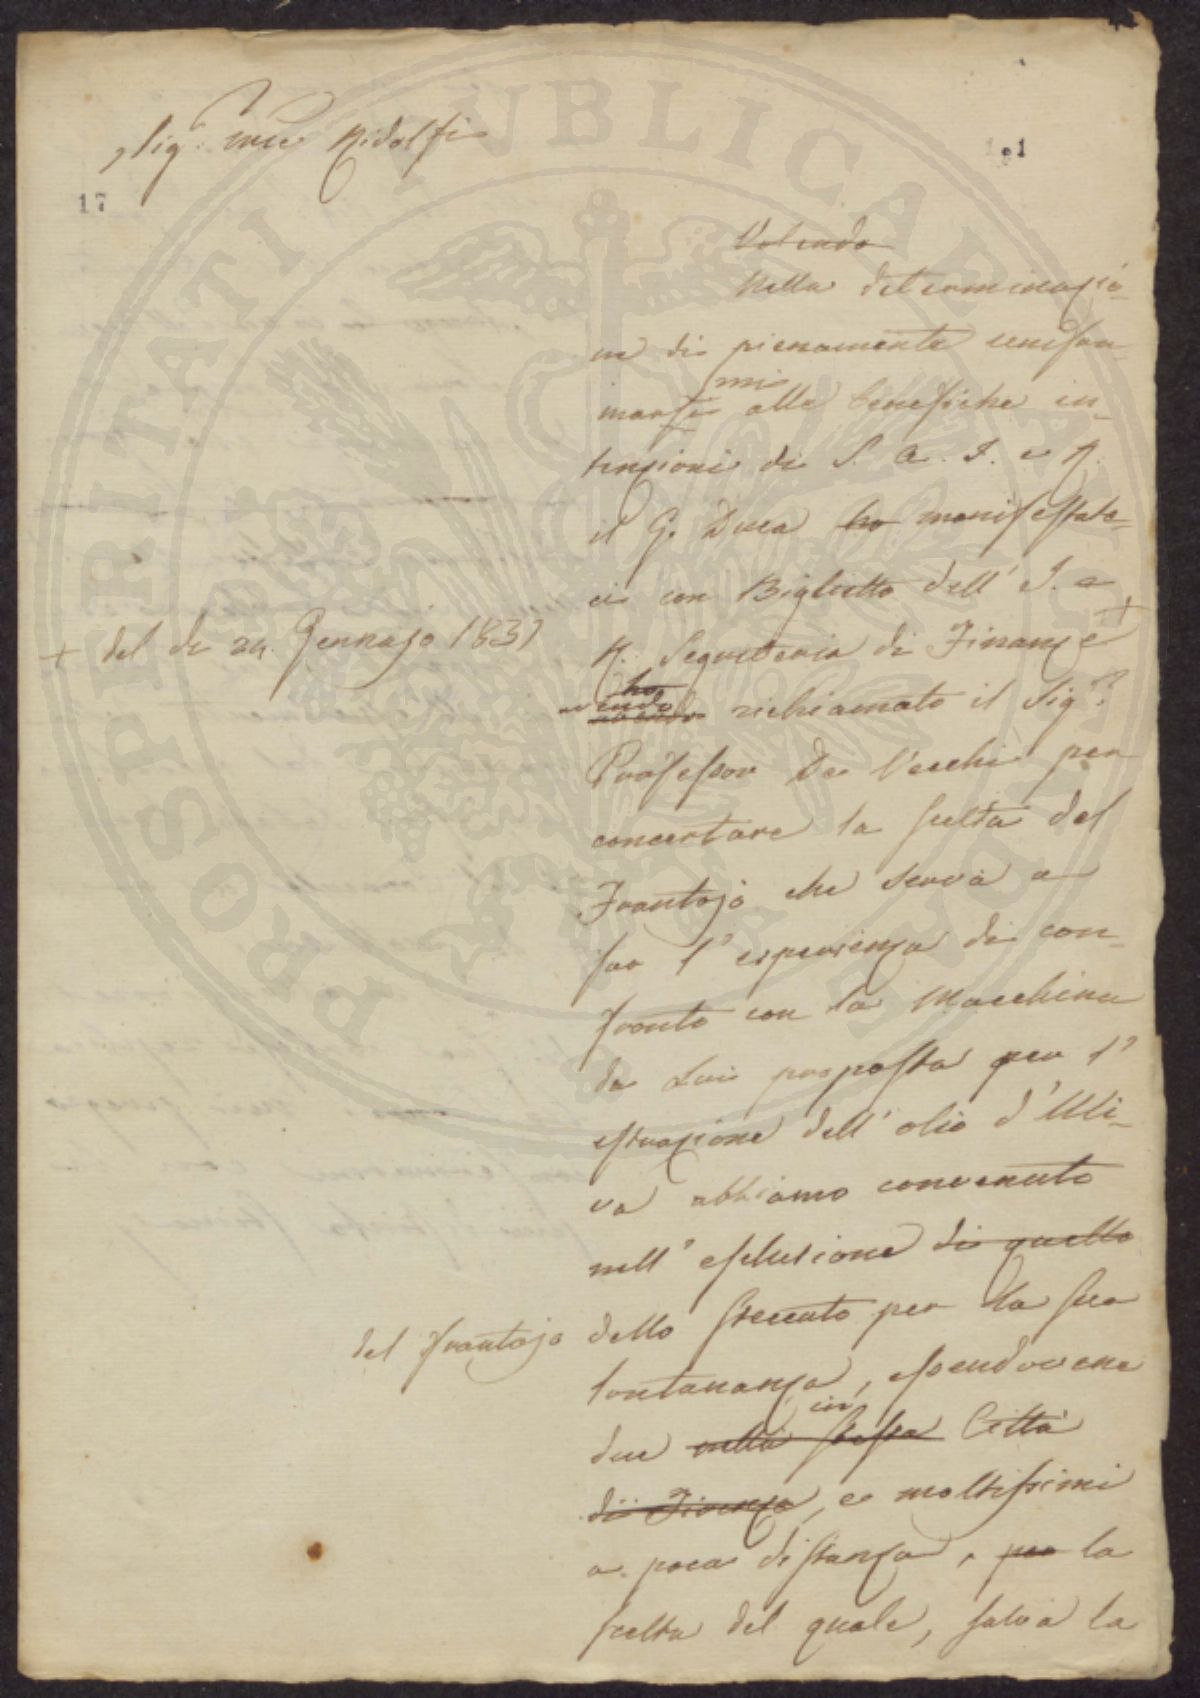 Sig. Ridolfi
17
1
Volendo
Nella determinazio-
ne di pienamente unifor-
mi
marsi alle benefiche in-
tenzioni di S. A. I. e R.
il G. Duca ho manifestate-
ci con Biglietto dell' I. e
+ del dì 24 Gennajo 1837
R. Segreteria di Finanze +
ho
avendo richiamato il Sig.
Professor De Vecchi per
concertare la scelta del
Frantojo che serva a
far l'esperienza di con-
fronto con la Macchina
da Lui proposta per l'
estrazione dell' olio d'Uli-
va abbiamo convenuto
nell' esclusione di quello
del frantojo dello Steccuto per la sua
lontananza, essendovene
in
due nella stessa Città
di Firenze, e moltissimi
a poca distanza, per la
scelta del quale, salva la
PROSPERITATI PUBLICAE AUGENDAE